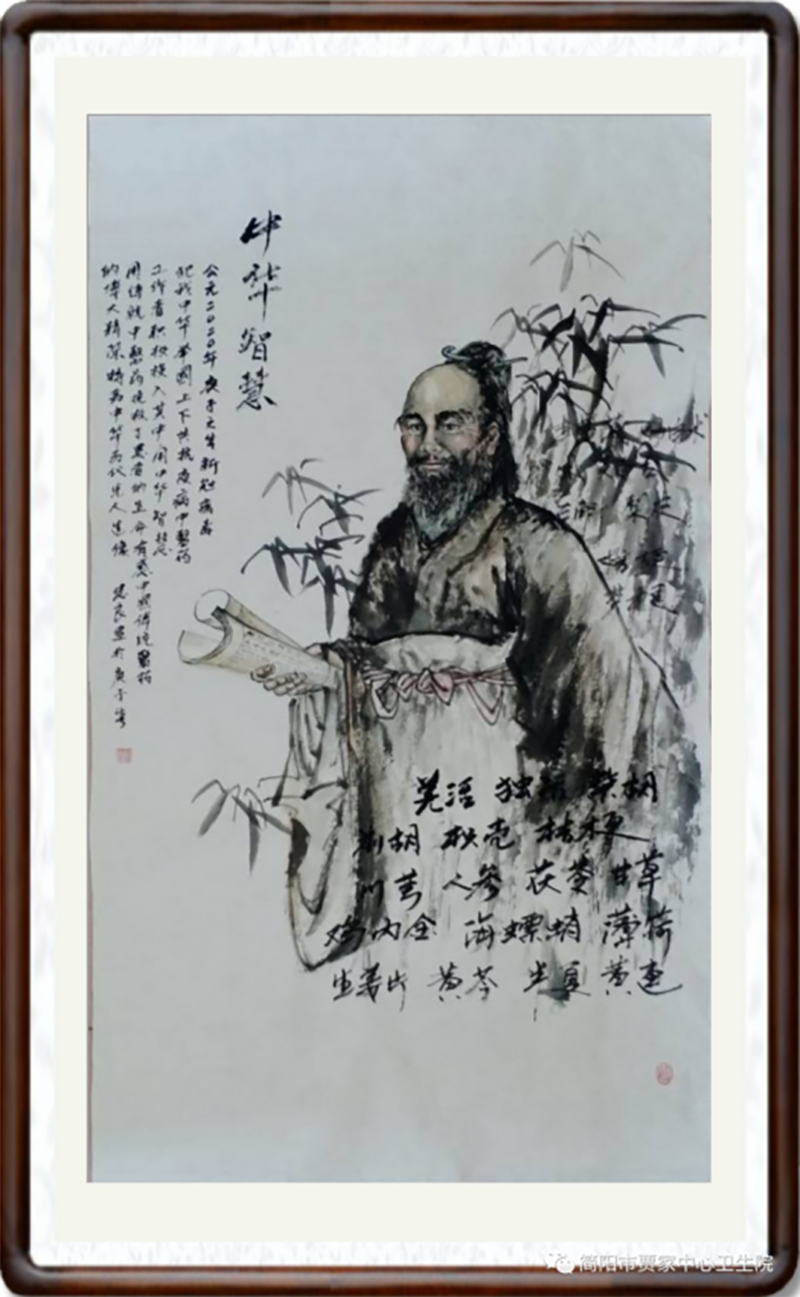 中华智慧
公元二〇二〇年庚子之年新冠病毒
犯我中华举國上下共抗疫病中醫药
工作者积极投入其中用中华智慧
用传统中醫药挽救了患者的生命有感中國传统醫药
的博大精深特為中华医
忠良畫於庚子年
羌活 独活 柴胡
前胡 枳壳 桔梗
川芎 人参 茯苓 甘草
鸡内金 海螵蛸 薄荷
生姜片 黄芩 半夏 黄连
简阳市贾家中心卫生院